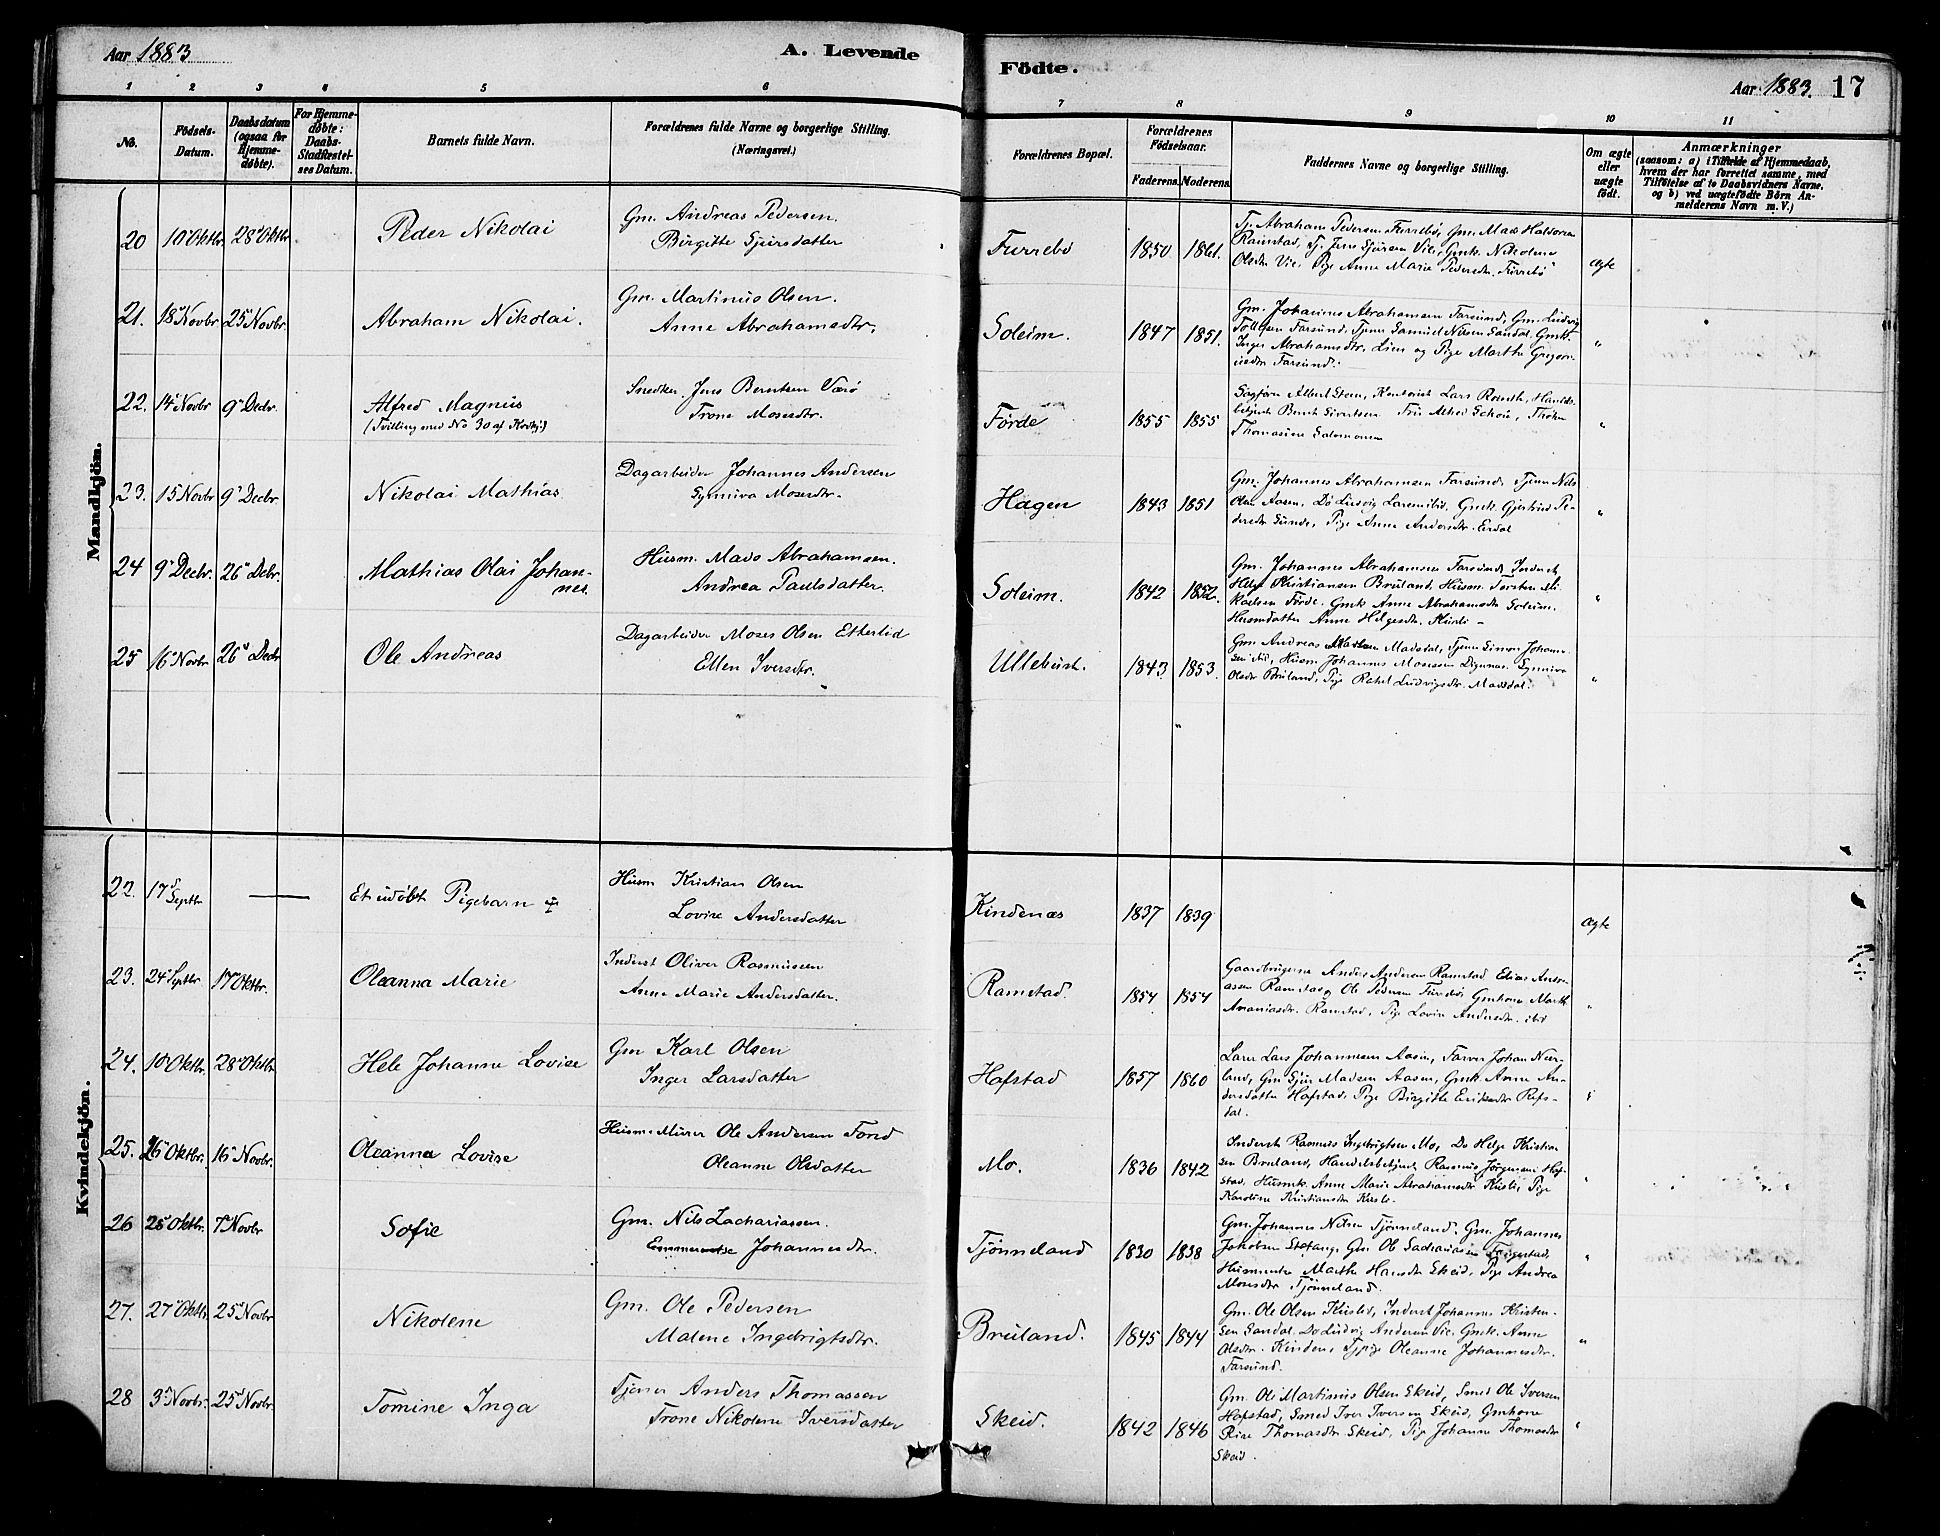 Aar 1883
A. Levende
Födte.
Aar 1883. 17
1 2 3 4 5 6
7 8 9 10 11
No.
Födsels-Datum.
Daabsdatum (ogsaa for Hjemmedöbte).
For Hjemmedøbte: Daabs-Stadfæstelses Datum.
Barnets fulde Navn.
Forældrenes fulde Navne og borgerlige Stilling.
(Næringsvei.)
Forældrenes Bopæl.
Forældrenes Födselsaar.
Faderens. Moderens.
Faddernes Navne og borgerlige Stilling.
Om ægte eller uægte födt.
Anmærkninger
(saasom: a) i Tilfælde af Hjemmedaab, hvem der har forrettet samme, med Tilföielse af to Daabsvidners Navne, og b) ved uægtefödte Börn Anmelderens Navn m. V.)
Mandkjön.
20 10 Oktbr. 28 Oktbr Peder Nikolai Gm. Andreas Pedersen.
Birgitte Sjursdatter
Furrebø 1850 1861. Tj. Abraham Pedersen Furrebø, Gm. Mads Halvorsen
Ramstad, Tj. Jens Sjursen Vie, Gmk. Nikoline
Olsdtr Vie, Pige Anne Marie Pedersdtr. Furrebø
ægte
21. 18 Novbr 25 Novbr Abraham Nikolai. Gm. Martinus Olsen.
Anne Abrahamsdtr.
Soleim. 1847 1851. Gm. Johannes Abrahamsen Farsund, Gm. Ludvig
Tollefsen Farsund, Tjener Samuel Nilsen Sandal. Gmk.
Inger Abrahamsdtr. Lien og Pige Marthe
Farsund. "
22. 14 Novbr 9 Decbr. Alfred Magnus
(Tvilling med No 30 af Kvdkj.)
Snedker Jens Berntsen Værø
Trone Mosesdtr.
Førde 1855 1855 Sagfører Albert Steen, Kontorist Lars
Thomasine Salomonsen "
23. 15 Novbr 9 Decbr Nikolai Mathias Dagarbeider Johannes Andersen
Synniva Mosesdtr.
Hagen 1843 1851 Gm. Johannes Abrahamsen Farsund, Tjener Nils
Olsen Aasen, Do Ludvig Gmk. Gjertrud Pe-
dersdtr Sunde, Pige Anne Andersdtr. Erdal "
24 9 Decbr. 26 Debr. Mathias Olai Johan-
nes.
Husm. Mads Abrahamsen.
Andrea Paulsdatter.
Soleim. 1842 1852. Gm. Johannes Abrahamsen Farsund, Inderst
Helge Kristiansen Bruland, Husm. Torsten Mi-
kaelsen Førde. Gmk Anne Abrahamsdtr Soleim.
Husmdatter Anne Helgesdtr. "
25 16 Novbr 26 Decbr Ole Andreas Dagarbeider Moses Olsen Etterlid
Ellen Iversdtr.
Ullebust. 1843 1853. Gm. Andreas Madsen Madsdal, Tjener Simon Johann-
sen Husm. Johannes Mosesen Digernes. Synniva
Olsdtr Bruland, Pige Rakel Ludvigsdtr. Madsdal. "
Kvindekjön.
22. 17 Septbr — Et udøbt Pigebarn Husm Kristian Olsen
Lovise Andersdatter
Kindenæs 1837 1839 ægte
23. 24 Septbr 17 Oktbr. Oleanna Marie Inderst Oliver Rasmussen
Anne Marie Andersdatter.
Ramstad. 1854 1854 Gaardbrugerne Anders Andersen Ramstad Elias Anani-
assen Ramstad, Ole Pedersen Furrebø, Gmkone Marthe
Ananiasdtr. Ramstad, Pige Lovise Andersdtr. ibid "
24. 10 Oktbr. 28 Oktbr Hele Johanne Lovise Gm Karl Olsen
Inger Larsdatter
Hafstad 1857 1860 Lærer Lars Johannesen Aasen, Farver Johan
Gm Sjur Madsen Aasen, Gmk. Anne An-
dersdatter Hafstad, Pige Birgitte Eriksdtr Refs-
dal. "
25. 26 Oktbr. 16 Novbr. Oleanna Lovise Husm. Murer Ole Andersen Fond
Oleanne Olsdatter
Mo. 1836 1842 Inderst Rasmus Ingebrigtsen Mo, Do Helge Kristian-
sen Bruland, Handelsbetjent Rasmus Jørgensen Haf-
stad, Husmk. Anne Marie Abrahamsdtr Pige
Karoline Kristiansdtr "
26 25 Oktbr. 7 Novbr Sofie Gm. Nils Zachariassen.
Johannesdtr.
Tjønneland 1830 1838 Gm. Johannes Nilsen Tjønneland. Gm. Johannes
Jakobsen Gm Ole
Marthe Hansdtr Skeid, Pige Andrea
Mosesdtr Tjønneland. "
27. 27 Oktbr 25 Novbr Nikolene Gm. Ole Pedersen
Malene Ingebrigtsdtr.
Bruland. 1845 1844 Gm. Ole Olsen Inderst Johannes Kristen-
sen Sandal. Do Ludvig Andersen Vie. Gmk. Anne
Olsdtr. Pige Oleanne Johannesdtr.
Farsund. "
28 3 Novbr. 25 Novbr. Tomine Inga Tjener Anders Thomassen
Trone Nikolene Iversdatter
Skeid. 1842 1846 Gm. Ole Martinus Olsen Skeid, Smed Ole Iversen
Hafstad, Smed Iver Iversen Skeid, Gmkone
Thomasdtr Skeid, Pige Johanne Thomasdtr
Skeid. "